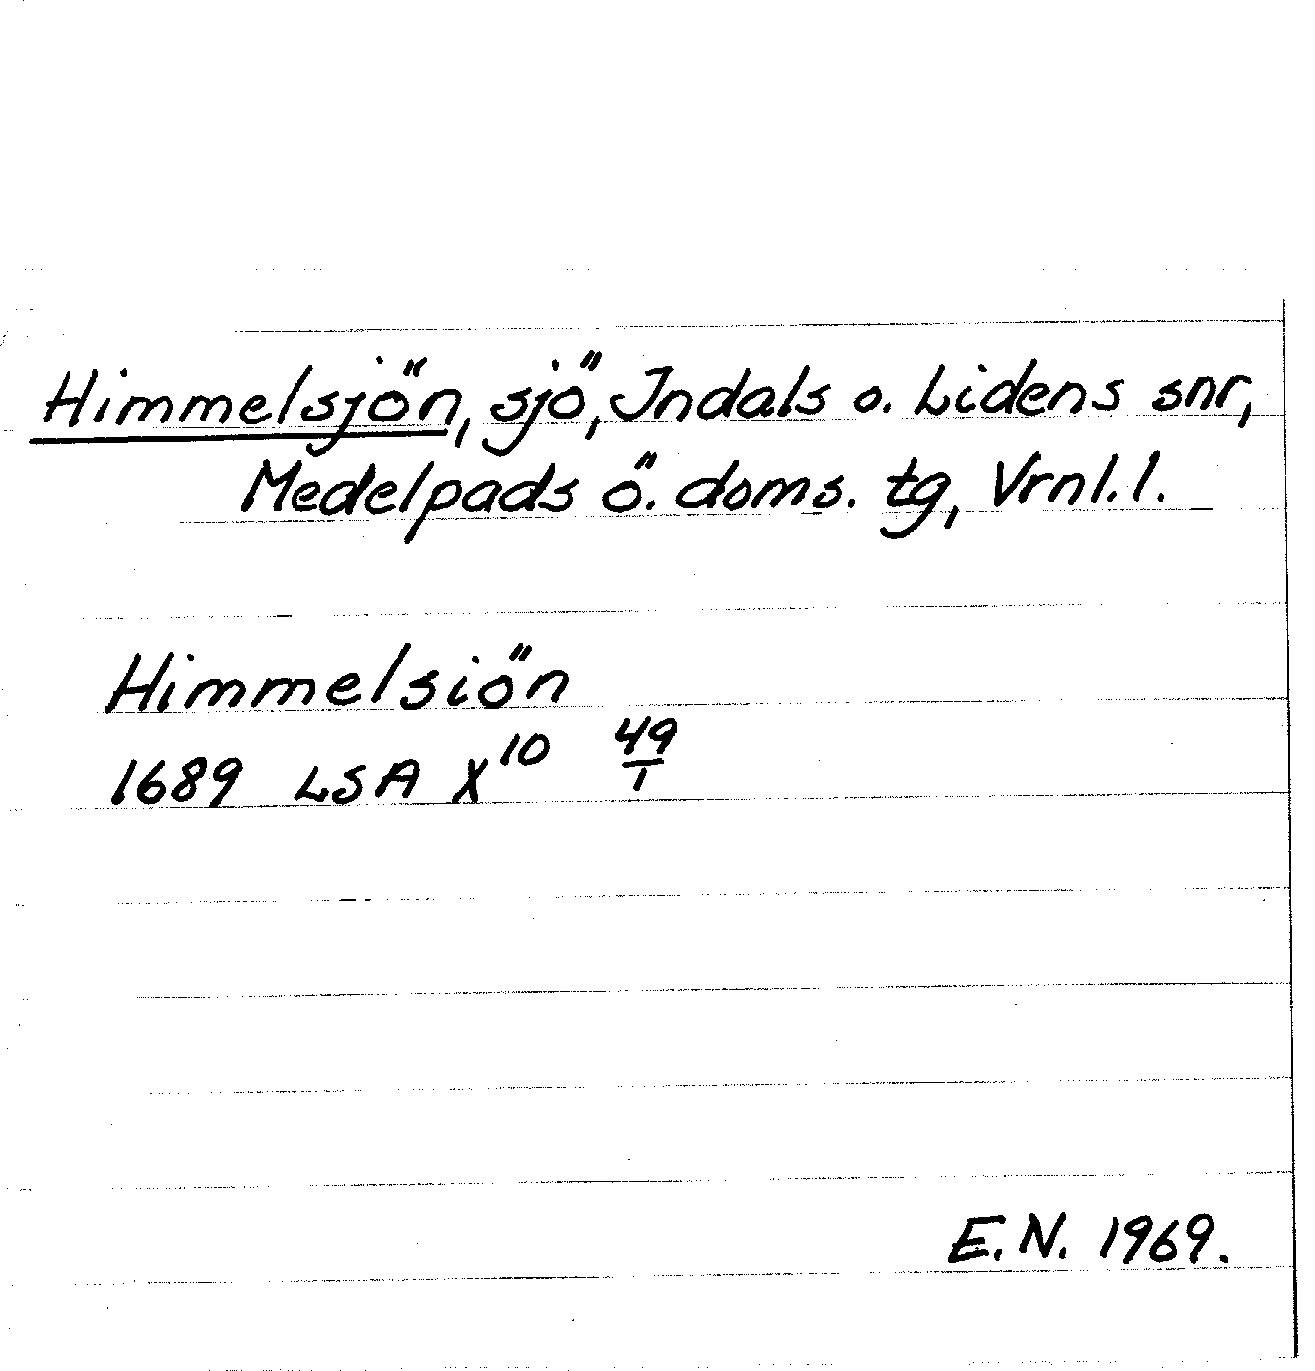 Himmelsjön, sjö, Indals o. Lidens snr,
Medelpads ö. doms. tg, Vrnl. l.
Himmelsiön
1689 LSA X¹⁰ 49/1
E.N. 1969.